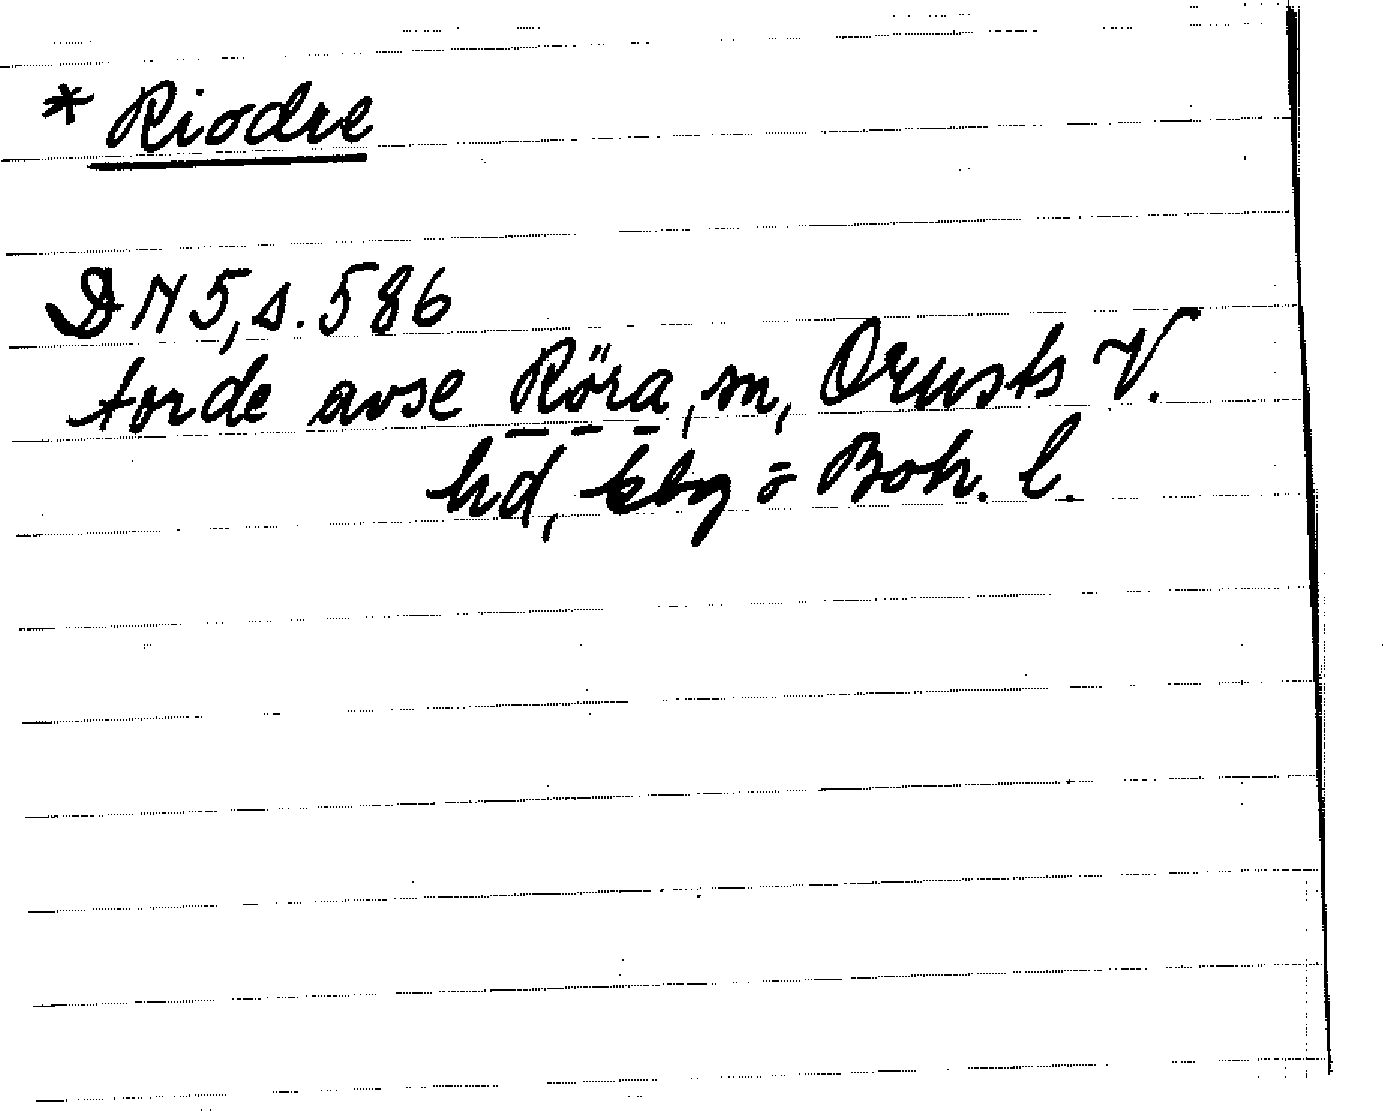 * Riodre
DN 5, s. 586
torde avse Röra, sn, Orusts V.
hd, Gbg o Boh. l.